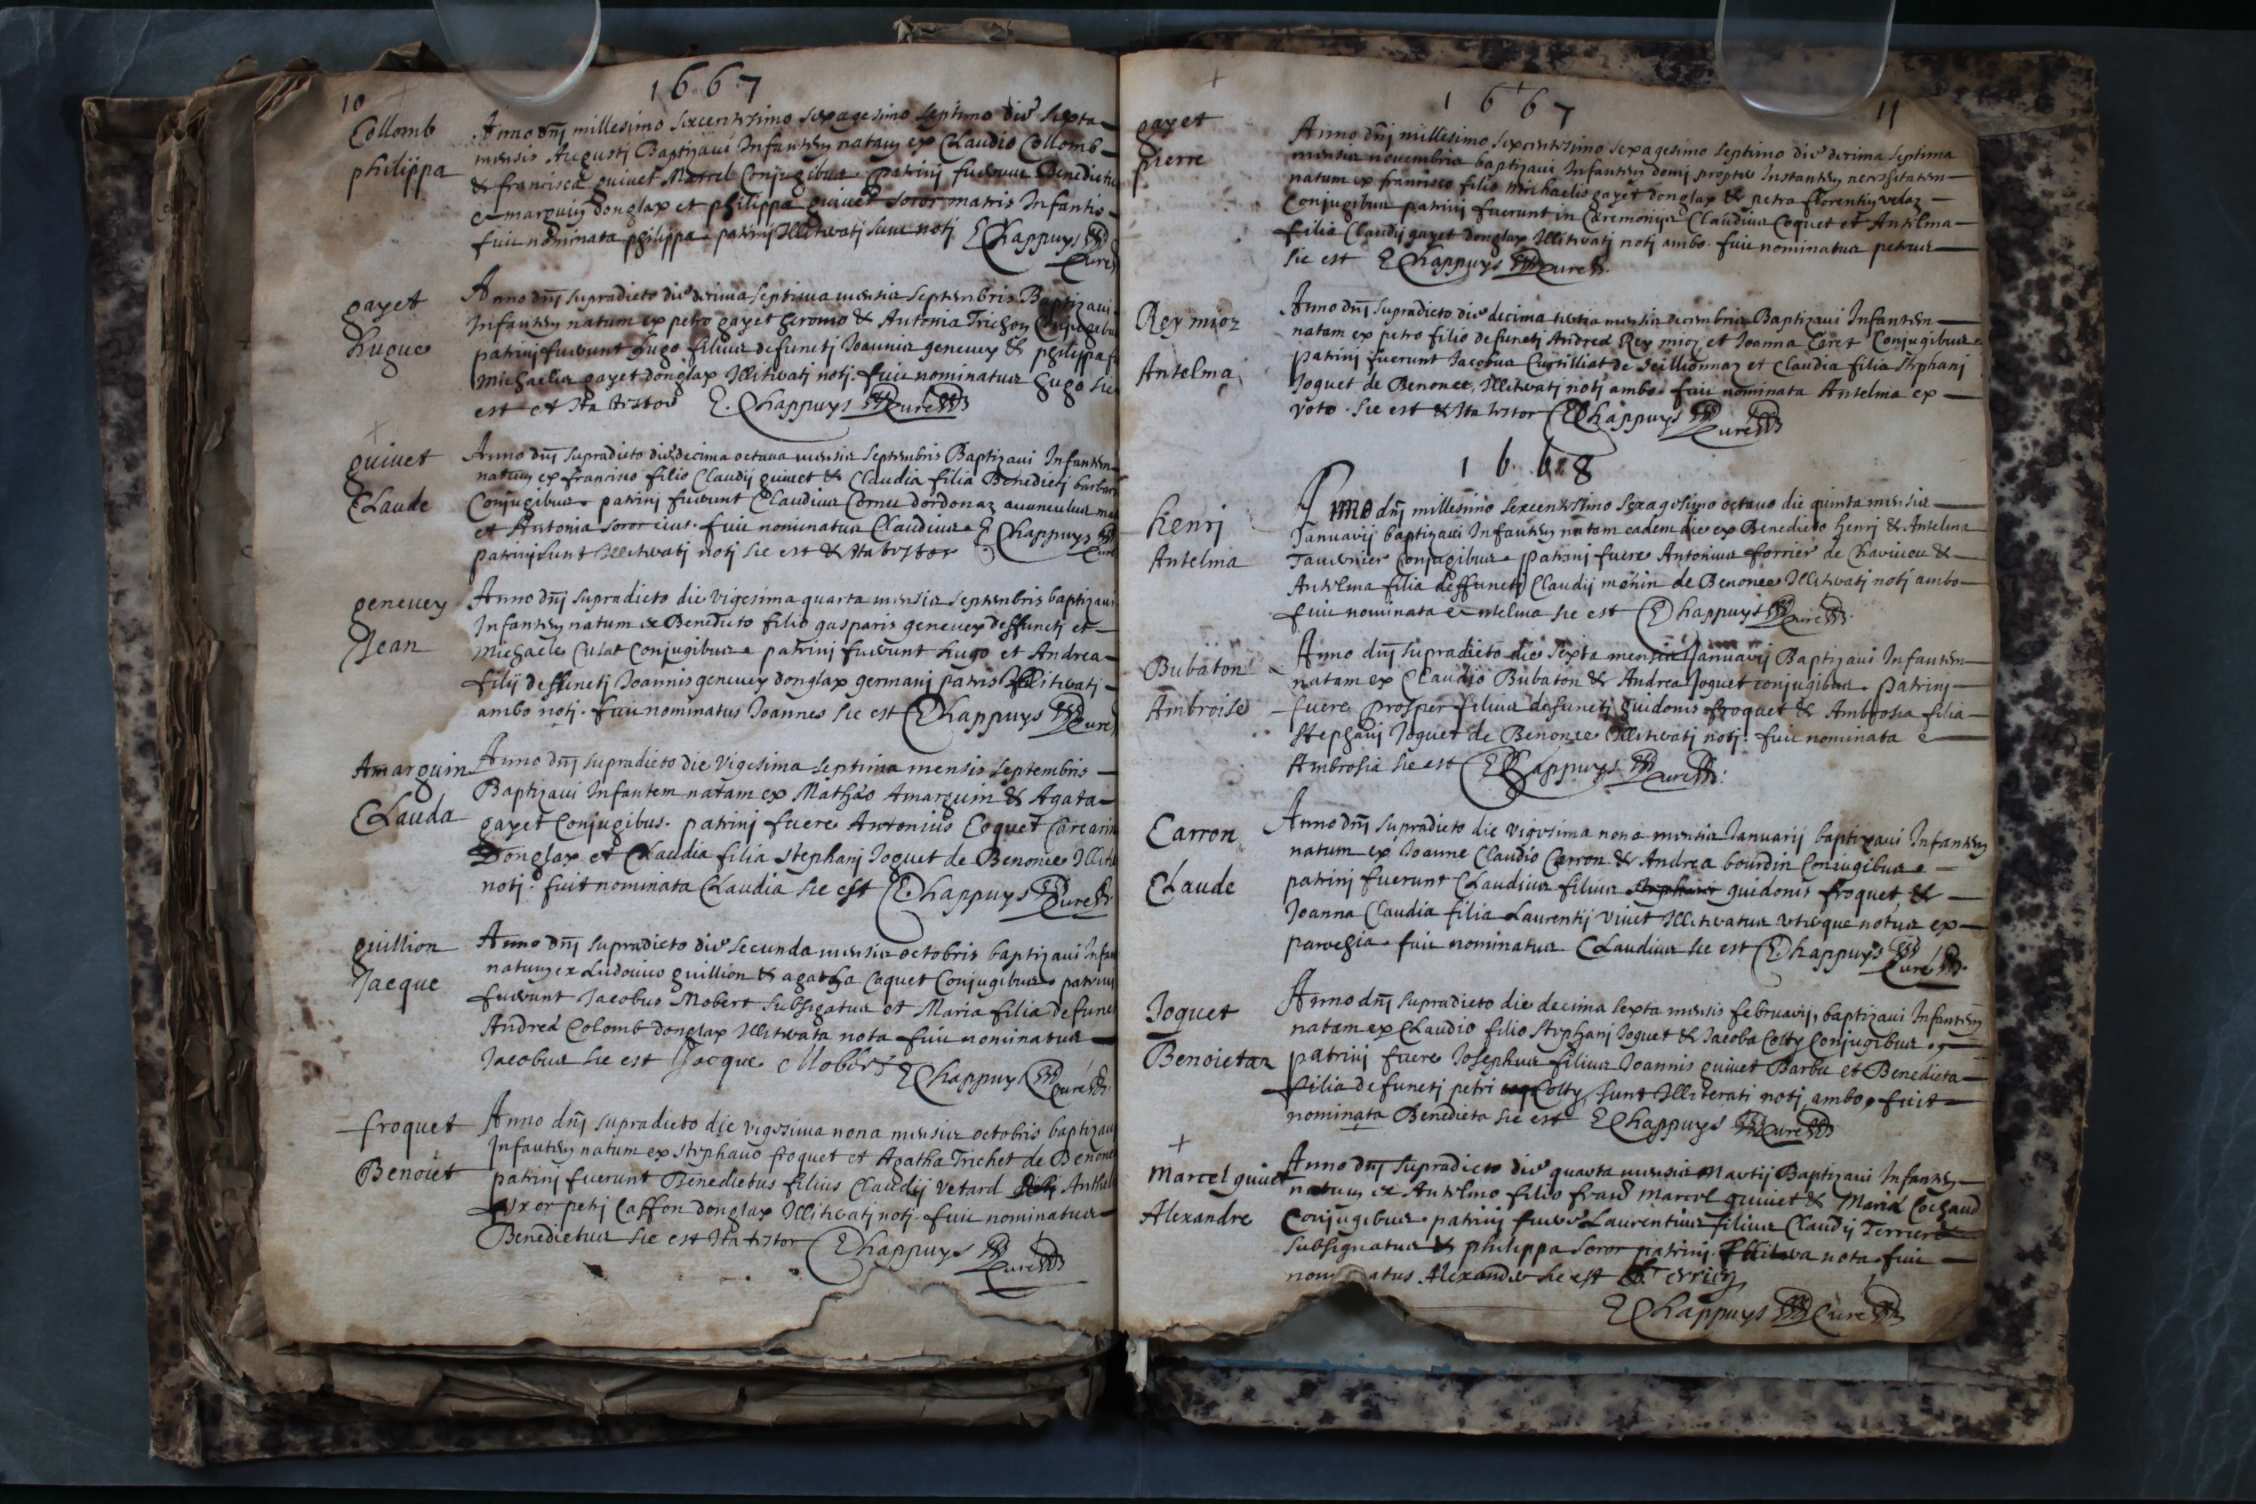 10
1667
Collomb
philippa
Anno dnj millesimo sexcentesimo sexagesimo septimo die sexta
mensis Augustj Baptizaui Infantem natam ex Claudio Collomb
& francisca guiuet Marcel Conjugibus patrinj fuerunt Benedictus
marguin donglax et philippa guiuet soror matris Infantis
fuit nominata philippa patrinj Illiteratj sunt notj E Chappuys
Curé
gayet
hugue
Anno dnj supradicto die decima septima mensis septembris Baptizaui
Infantem natum ex petro gayet & Antonia Trichon
patrinj fuerunt hugo filius defunctj Joannis geneuey & philippa
Michaelis gayet donglax Illiteratj notj. fuit nominatus hugo sic
est et Ita testor E. Chappuys Curé
guiuet
Claude
Anno dnj supradicto die decima octaua mensis septembris Baptizaui Infantem
natum ex francisco filio Claudij guiuet & Claudia filia Benedictj
Conjugibus patrinj fuerunt Claudius Cornu dordonaz auunculus
et Antonia soror eius. fuit nominatus Claudius E Chappuys
patrinj sunt Illiteratj notj sic est & Ita testor Curé
geneuey
Jean
Anno dnj supradicto die vigesima quarta mensis septembris baptizaui
Infantem natum ex Benedicto filio gasparis geneuey deffunctj et
Michaele Culat Conjugibus patrinj fuerunt hugo et Andrea
filij deffunctj Joannis geneuey donglax germanj patris Illiteratj
ambo notj. fuit nominatus Joannes sic est E Chappuys Curé
Amarguin
Clauda
Anno dnj supradicto die vigesima septima mensis septembris
Baptizaui Infantem natam ex Mathæo Amarguin & Agata
gayet Conjugibus. patrinj fuere Antonius Coquet
Donglax et Claudia filia stephanj Joguet de Benonce
notj. fuit nominata Claudia sic est E Chappuys Curé
guillion
Jacque
Anno dnj supradicto die secunda mensis octobris baptizaui
natum ex Ludouico guillion & agatha Coquet Conjugibus patrinj
fuerunt Jacobus Mobert subsignatus et Maria filia
Andreæ Colomb donglax Illiterata nota fuit nominatus
Jacobus sic est Jacque Mobert E Chappuys Curé
froquet
Benoiet
Anno dnj supradicto die vigesima nona mensis octobris baptizaui
Infantem natum ex stephano froquet et Agatha Trichet de Benonce
patrinj fuerunt Benedictus filius Claudij vetard
uxor petrj Caffon donglax Illiteratj notj. fuit nominatus
Benedictus sic est Ita testor E Chappuys Curé
1667
11
gayet
pierre
Anno dnj millesimo sexcentesimo sexagesimo septimo die decima septima
mensis nouembris baptizaui Infantem domj propter Instantem necessitatem
natum ex francisco filio Michaelis gayet donglax & petra florentin velaz
Conjugibus patrinj fuerunt in Cæremonijs Claudius Coquet et Antelma
filia Claudij gayet donglax Illiteratj notj ambo. fuit nominatus petrus
sic est E Chappuys Curé
Rey mioz
Antelma
Anno dnj supradicto die decima tertia mensis decembris Baptizaui Infantem
natam ex petro filio defunctj Andreæ Rey mioz et Joanna Caret Conjugibus
patrinj fuerunt Jacobus Curtilliat de seillionnaz et Claudia filia stephanj
Joguet de Benonce, Illiteratj notj ambo fuit nominata Antelma ex
voto. sic est & Ita testor E Chappuys Curé
1668
henrj
Antelma
Anno dnj millesimo sexcentesimo sexagesimo octauo die quinta mensis
Januarij baptizaui Infantem natam eadem die ex Benedicto henrj & Antelma
Tauernier Conjugibus patrinj fuere Antonius forrier de &
Antelma filia deffunctj Claudij monin de Benonce Illiteratj notj ambo
fuit nominata Antelma sic est E Chappuys Curé
Bubaton
Ambroise
Anno dnj supradicto die sexta mensis Januarij Baptizaui Infantem
natam ex Claudio Bubaton & Andrea Joguet conjugibus. patrinj
fuere prosper filius defunctj guidonis froquet & Ambrosia filia
stephanj Joguet de Benonce Illiteratj notj. fuit nominata
Ambrosia sic est E Chappuys Curé
Carron
Claude
Anno dnj supradicto die vigesima nona mensis Januarij baptizaui Infantem
natum ex Joanne Claudio Carron & Andrea bourdin Conjugibus
patrinj fuerunt Claudius filius guidonis froquet &
Joanna Claudia filia Laurentij viuet Illiteratus uterque notus ex
parochia fuit nominatus Claudius sic est E Chappuys Curé
Joguet
Benoietaz
Anno dnj supradicto die decima sexta mensis februarij, baptizaui Infantem
natam ex Claudio filio stephanj Joguet & Jacoba Colty Conjugibus
patrinj fuere Josephus filius Joannis guiuet Barbu et Benedicta
filia defunctj petri Colty, sunt Illiterati notj ambo, fuit
nominata Benedicta sic est E Chappuys Curé
Marcel guiuet
Alexandre
Anno dnj supradicto die quarta mensis Martij Baptizaui Infantem
natum ex Antelmo filio Marcel guiuet & Maria Cochaud
Conjugibus. patrinj fuere Laurentius filius Claudij Terrier
subsignatus & philippa soror patrinj. Illiterata nota. fuit
nominatus Alexander sic est
E Chappuys Curé